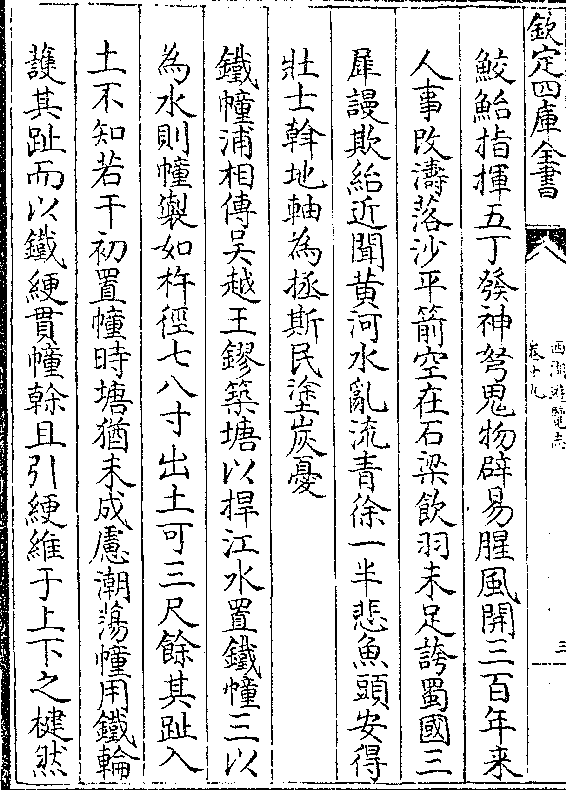 欽定四庫全書
西湖遊覽志
卷十九
三
鮫鮐指揮五丁發神弩鬼物辟易腥風開三百年来
人事改濤落沙平箭空在石梁飲羽未足誇蜀國三
犀謾欺紿近聞黄河水亂流青徐一半悲魚頭安得
壯士斡地軸為拯斯民塗炭憂
鐵幢浦相傳吳越王鏐築塘以捍江水置鐵幢三以
為水則幢製如杵徑七八寸出土可三尺餘其趾入
土不知若干初置幢時塘猶未成慮潮蕩幢用鐵輪
護其趾而以鐵綆貫幢榦且引綆維于上下之楗然